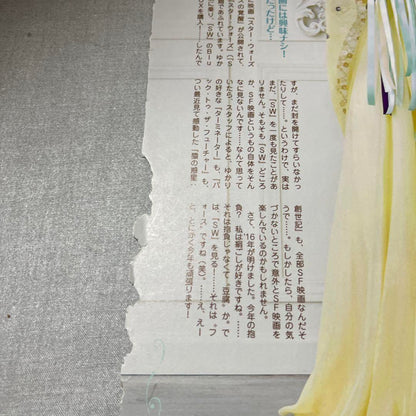 間には興味ナシ！
だったけど…
映画「スター・ウォーズ
の覚醒」が公開されて、
題であふれています。ゆか
に乗り、「SW」のBlu
X を購入！……したんで
すが、まだ封を開けてすらいなかっ
たりして……。というわけで、実は
まだ、「SW」を一度も見たことがあ
りません。そもそも「SW」どころ
か、SF映画というもの自体をそん
なに見ないんです……なんて思って
いたら、スタッフによると、ゆかり
の好きな「ターミネーター」も、「バ
ック・トゥ・ザ・フューチャー」も、
つい最近見て感動した「猿の惑星
創世記」も、全部SF映画なんだそ
うで……。もしかしたら、自分の気
づかないところで意外とSF映画を
楽しんでいるのかもしれません。
さて、'16年が明けました。今年の抱
負？　私は絹ごしが好きですね。……
それは抱負じゃなくて、豆腐か。で
は、「SW」を見る！……それは、“フ
ォース”ですね（笑）。……え、えー
と、とにかく今年も頑張ります！